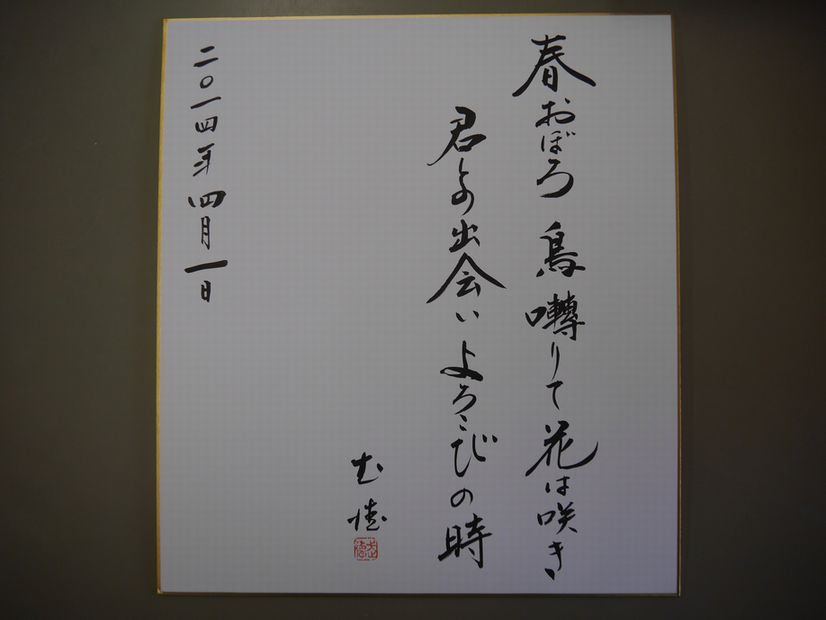 春おぼろ 鳥囀りて花は咲き
君との出会いよろこびの時
二〇一四年四月一日